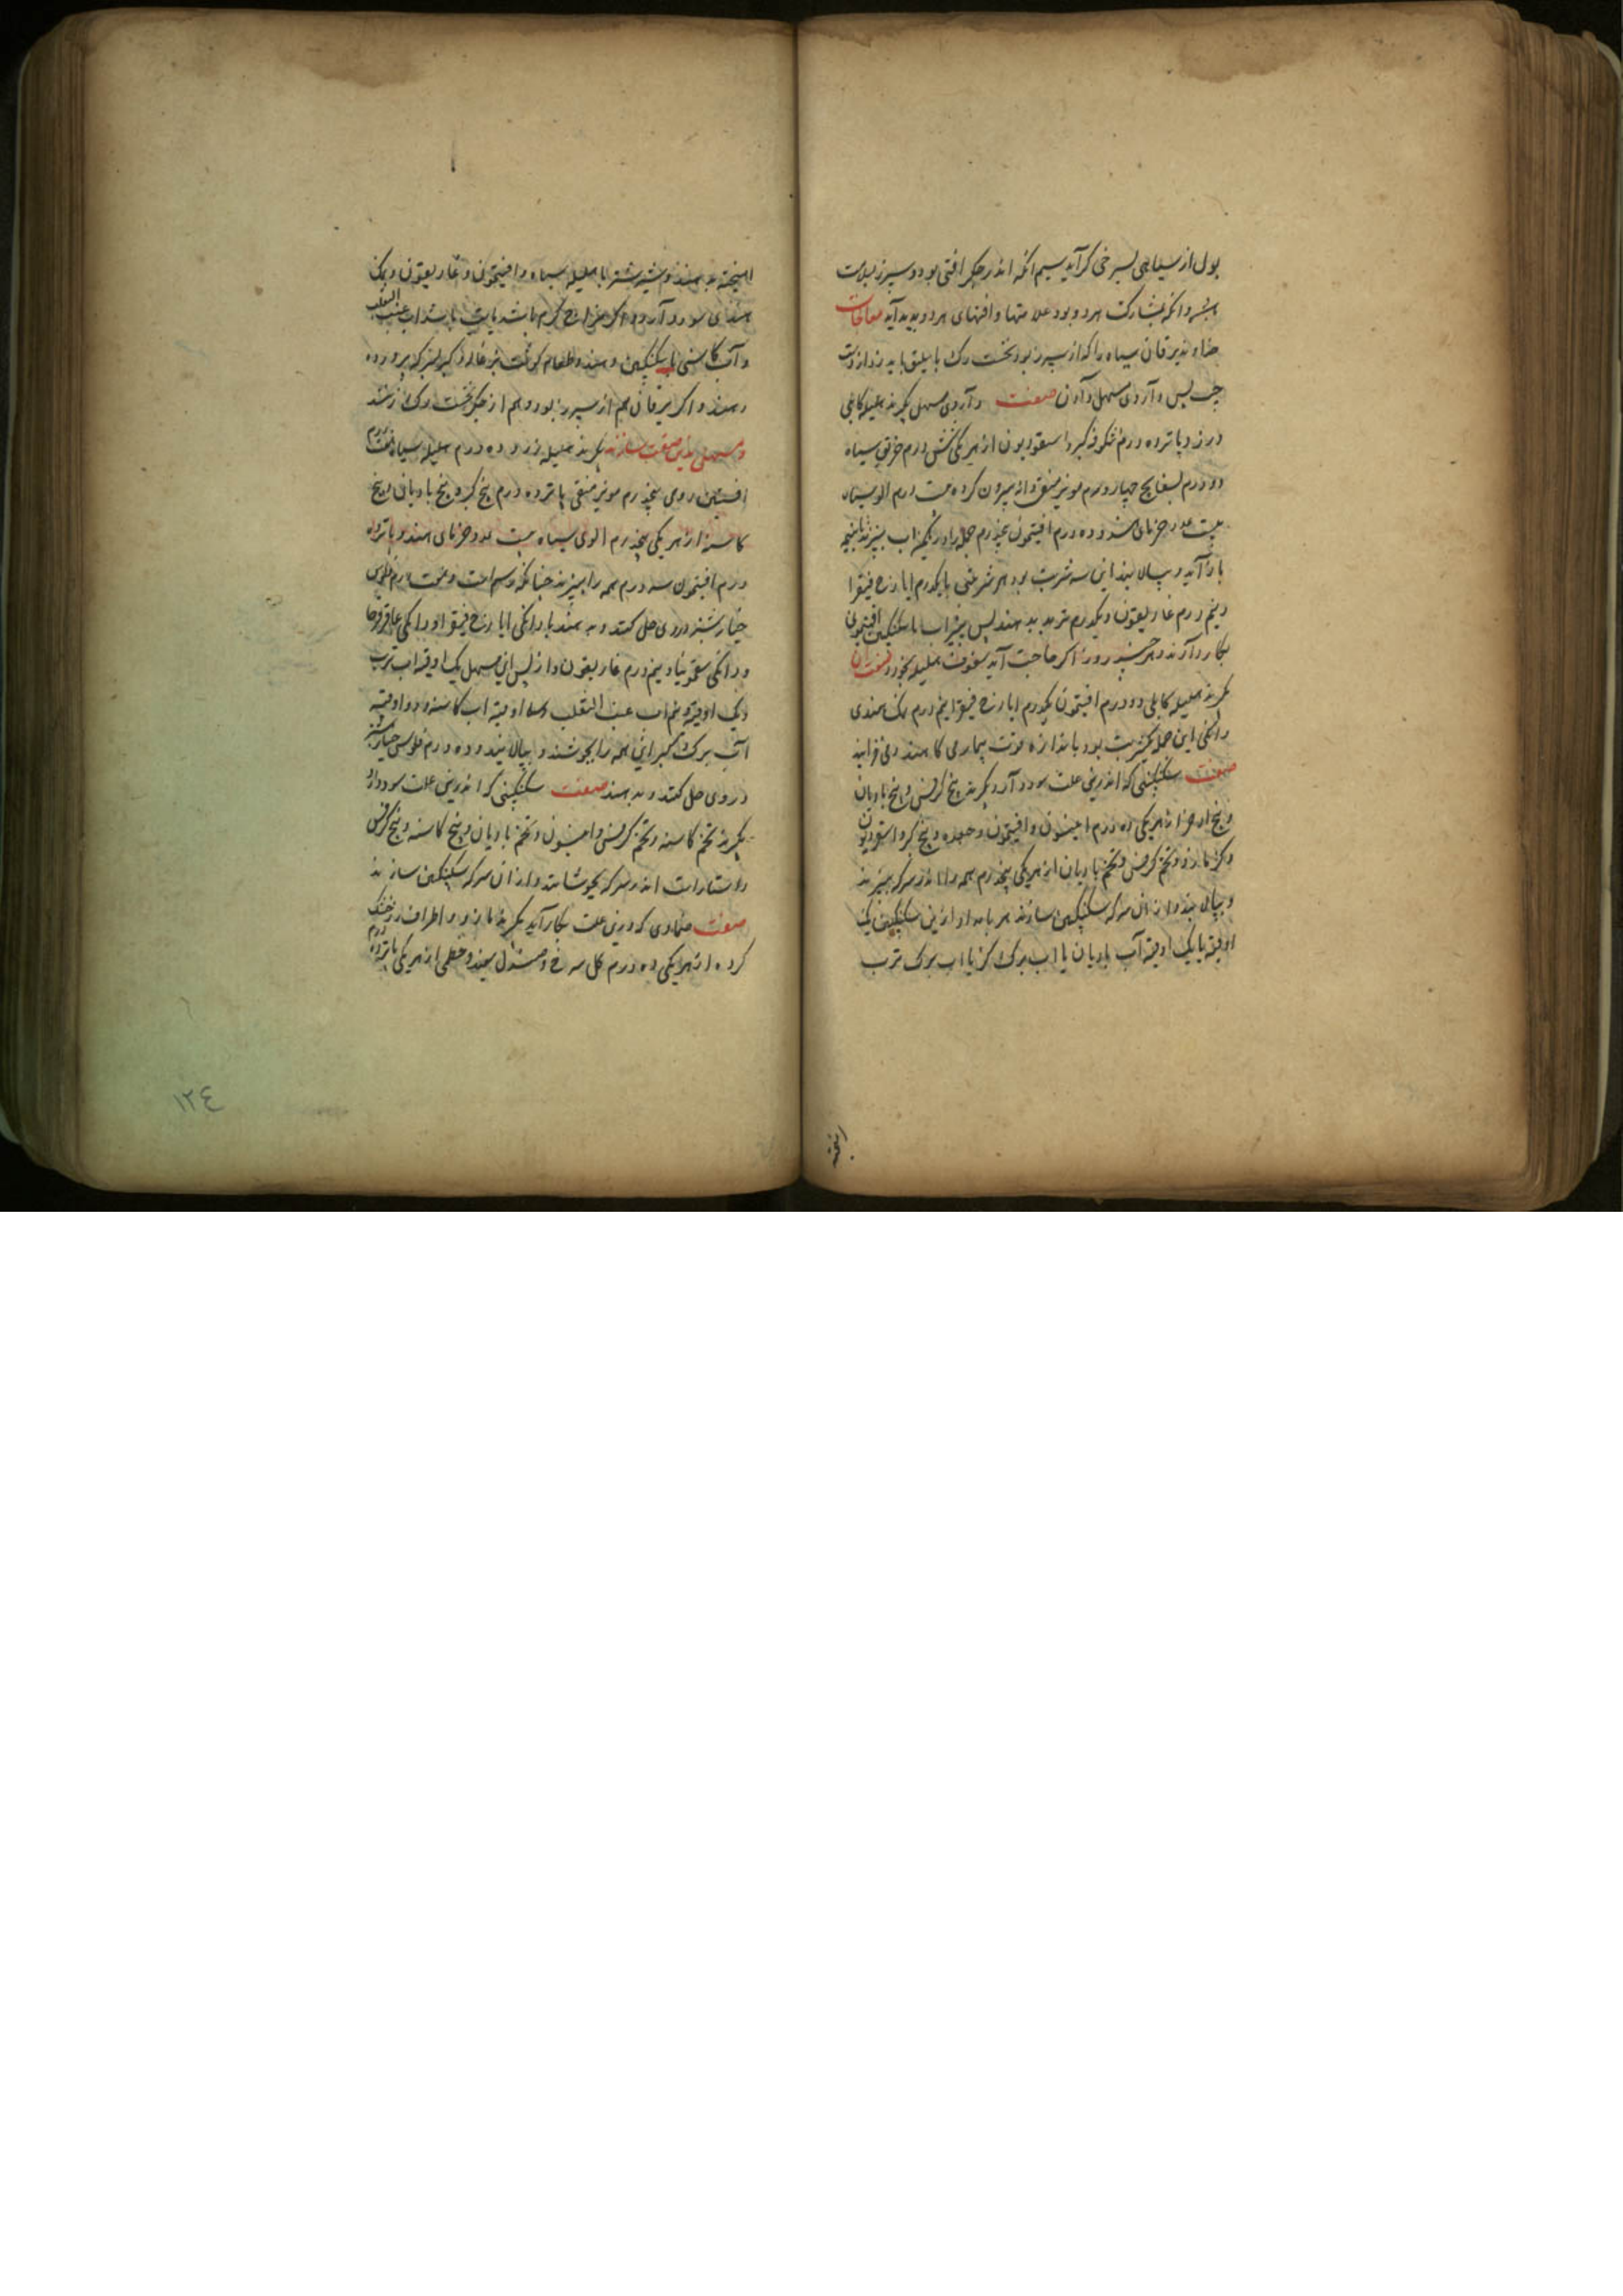 بول از سیاهی بسرخی کراید سیم انکه اندر جکر افتی بود و سپرز بسلامت
باشد و انکه بمشارکت هردو بود علامتها و افتهای هردو پدید آید معالجات
خداوند یرقان سیاه را که از سپرز بود نخست رک باسلیق باید زد از دست
چپ پس داروی مسهل دادن صفت داروی مسهل بکیرند هلیله کابلی
درم و پانزده درم شکوفه کبر و اسقوردیون از هر یکی شش درم خربق سیاه
دو درم بسفایج چهار درم مویز منقی دانه بیرون کرده بیست درم الوی سیاه
بیست عدد خرمای هندو ده درم افتیمون پنجدرم جمله را در یکمن اب بپزند تا بنیمه
باز آید و بپالایند این سه شربت بود هر شربتی با یکدرم ایارج فیقرا
و نیم درم غاریقون و یکدرم تربد بدهند پس پنیراب با سکنکبین افتیمونی
بکار دارند و هر چند روز اکر حاجت آید سفوف هلیله بخورد صفت ان
بکیرند هلیله کابلی دو درم افتیمون یکدرم ایارج فیقرا نیم درم نمک هندی
دانکی این جمله یکشربت بود باندازه قوت بیماری کاهند و می فزایند
صفت سکنکبینی که اندرین علت سود دارد بکیرند بیخ کرفس و بیخ بادیان
و بیخ اذخر از هر یکی ده درم انیسون و افتیمون و جعده و بیخ کبر و اسقوردیون
و کزمازو و تخم کرفس و تخم بادیان از هر یکی پنجدرم همه را اندر سرکه بپزند
و بپالایند و از ان سرکه سکنکبین سازند هر بامداد ازین سکنکبین یک
اوقیه با یک اوقیه آب بادیان یا اب برک کز یا اب برک ترب
امیخته
امیخته بدهند و شیر شتر با هلیله سیاه و افتیمون و غاریقون و نمک
هندی سود دارد و اکر مزاج کرم باشد باب عنب الثعلب
و آب کاسنی با سکنکبین دهند و طعام کوشت بزغاله و کبر بسرکه پرورده
دهند و اکر یرقان هم از سپرز بود و هم از جکر نخست رک زنند
و مسهلی بدین صفت سازند بکیرند هلیله زرد ده درم هلیله سیاه هفت درم
افسنتین رومی پنجدرم مویز منقی پانزده درم بیخ کبر و بیخ بادیان و بیخ
کاسنه از هر یکی پنجدرم الوی سیاه بیست عدد خرمای هندو پانزده
درم افتیمون سه درم همه را بپزند جنانکه رسم است و درم فلوس
خیارشنبر در وی حل کنند و بدهند با دانکی ایارج فیقرا و دانکی عاقرقرحا
و دانکی سقمونیا و نیم درم غاریقون و از پس این مسهل یک اوقیه اب ترب
و یک اوقیه و نیم اب عنب الثعلب و اوقیه اب کاسنه و دو اوقیه
آب برک کبر این همه را بجوشند و بپالایند و ده درم فلوس خیارشنبر
در وی حل کنند و بدهند صفت سکنکبینی که اندرین علت سود دارد
بکیرند تخم کاسنه و تخم کرفس و انیسون و تخم بادیان و بیخ کاسنه و بیخ کرفس
راستاراست اندر سرکه بجوشانند و از ان سرکه سکنکبین سازند
صفت ضمادی که درین علت بکار آید بکیرند و اطراف خشک
کرده از هر یکی ده درم کل سرخ و صندل سپید و خطمی از هر یکی پانزده درم
١٢٤